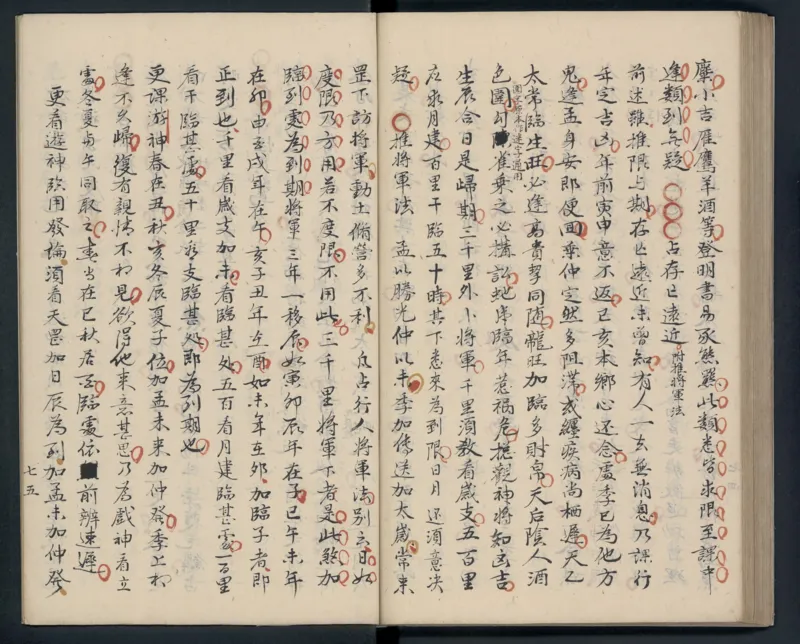 麋小吉雁鷹羊酒等登明書易豕熊羆此類悉皆求限至課中
逢類到無疑　占存亡遠近附推將軍法
前述雖推限与期存亡遠近未曾知有人一去無消息乃課行
年定吉凶年前寅申意不返巳亥本鄉心还念盧季已為他方
鬼逢孟身安即便回乗仲定然多阻滞或纏疾病尚栖遲天乙
太常臨生旺必逢為貴挈同随龍旺加臨多財帛天后陰人酒
色圍勾陳雀乗之必搆訟蛇虎臨年惹禍危梃觀神將知凶吉
生辰合日是歸期三千里外小將軍千里須教看歲支五百里
在求月建百里干臨五十時其下悉来為到限日月还須意决
疑　推將軍法　孟以勝光仲以未季加傳送加太歲常来
罡下訪將軍動土脩營多不利　大凡占行人將軍法別六日如
度限乃方用若不度限不用此三千里將軍下者是此煞加
臨到處為到期將軍三年一移居如軍卯辰年在子巳午未年
在卯申酉戌年在午亥子丑年在酉如未年在卯加臨子者即
正到也千里看歲支加未看臨甚处五百看月建臨甚處一百里
看干臨甚處五十里求支臨甚处即為到期也
更課游神春在丑秋亥冬辰夏子位加孟未来加仲發季上相
逢不久歸復有親情不相見欲得他来意甚思乃為戲神看立
處冬夏卯午同取之春当在巳秋居酉臨處依前辨速遲
更看遊神臨用發論須看天罡加日辰為到加孟未加仲發
七五